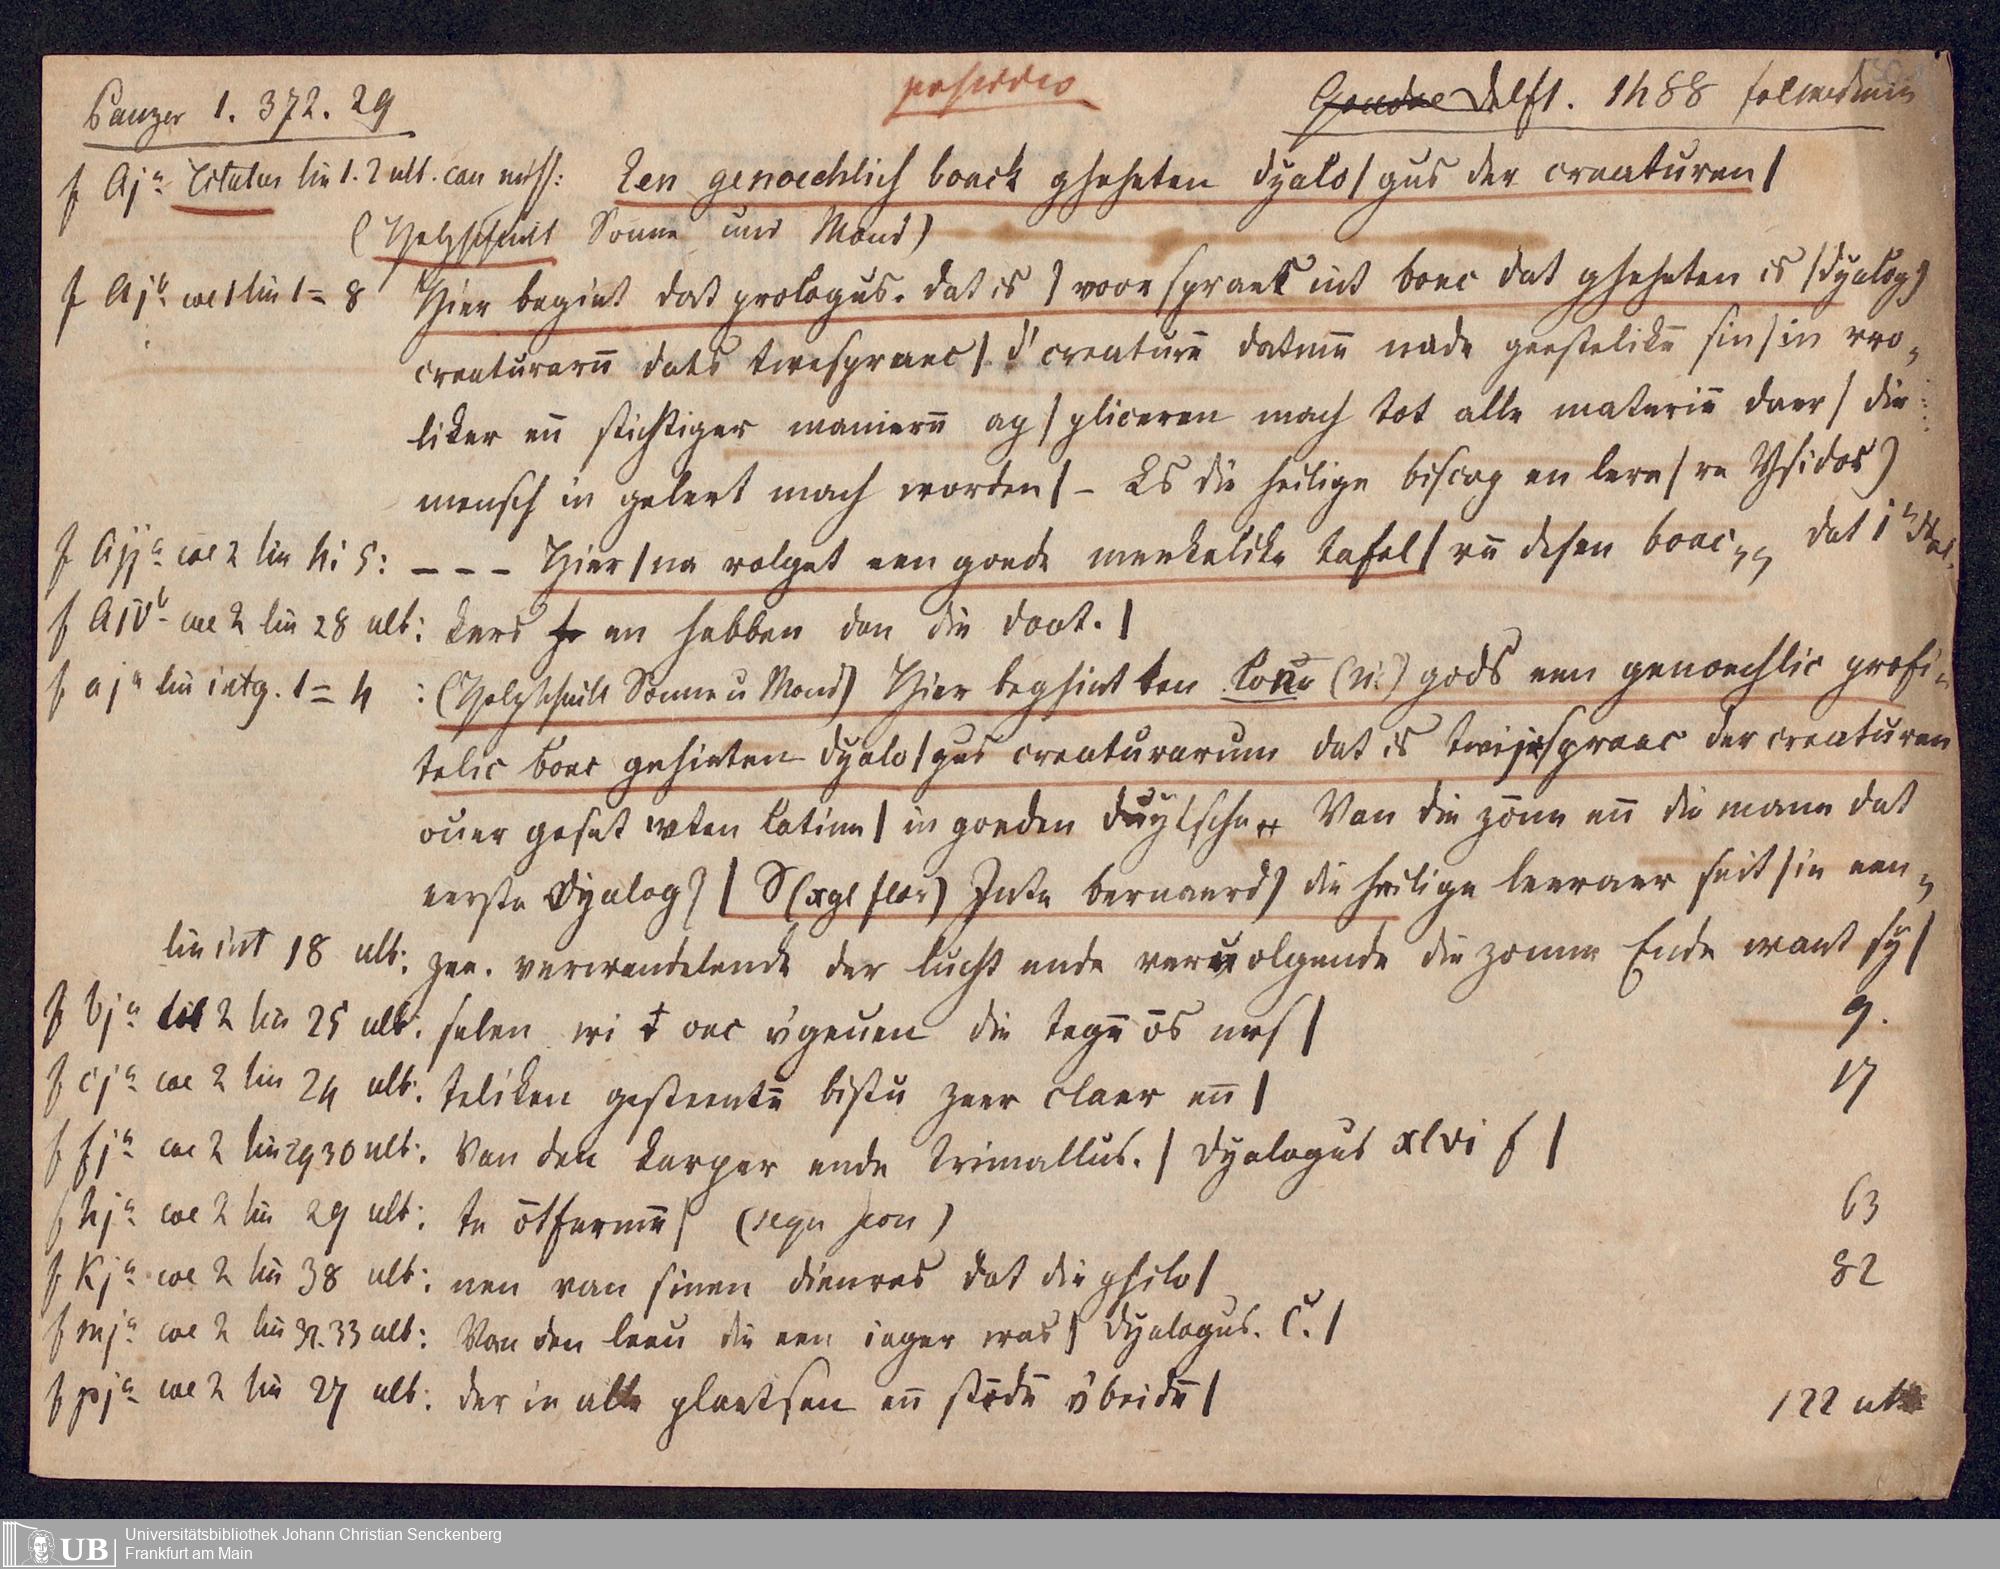 Panzer 1. 372. 29
Goudae Delft. 1488 fol med min
f Aj a Titulus lin 1. 2 ult. car miss: Een genoechlich boeck gheheten dyalo/gus der creaturen/
(Holzschnitt Sonne und Mond)
f Aj b col 1 lin 1 = 8 Hier begint dat prologus. dat is / voor spraek int boec dat gheheten is /dyalog9
creaturarū dats twespraec / d' creaturē datmē nade geestelikē sin / in vro-
liker eñ stichtiger manierē ap / pliceren mach tot alle materiē daer / die
mensch in geleert mach worden / - Es die heilige biscop en lera / re Ysidor9
f Aij a col 2 lin 4. 5: - - - Hier / na volget een goede merkelike tafel / vā desen boec dat i
f Aiv b col 2 lin 28 ult: kers en hebben dan die doot. /
f a j a lin intg. 1 = 4 : (Holzschnitt Sonne u Mond) Hier beghint ten gods een genoechlic profi-
telic boec gehieten dyalo / gus creaturarum dat is twijspraec der creaturen
ouer geset wten latine / in goeden duytsche Van die zōne eñ die mane dat
eerste dyalog9 / S(xyl flor) Inte bernaerd9 die heilige leeraer seit / in een
lin int 18 ult: zee. verwandelende der lucht ende vervolgende die zonne Ende want sy /
f bj a col 2 lin 25 ult: selen wi oec v'geuen die tegē ōs mes / 9.
f cj a col 2 lin 24 ult: teliken gesteentē bistu zeer claer eñ / 17
f fj a col 2 lin 29 30 ult: Van den karper ende trimallus. / dyalogus xlvi /
f hj a col 2 lin 29 ult: te ōtfermē / 63
f Kj a col 2 lin 38 ult: nen van sinen dienres dat die philo / 82
f mj a col 2 lin 32. 33 ult: Van den leeu die een iager was / dyalogus. C. /
f pj a col 2 lin 27 ult: der in alle plaetsen eñ stedē v'beidē / 122 ult
UB Universitätsbibliothek Johann Christian Senckenberg
Frankfurt am Main